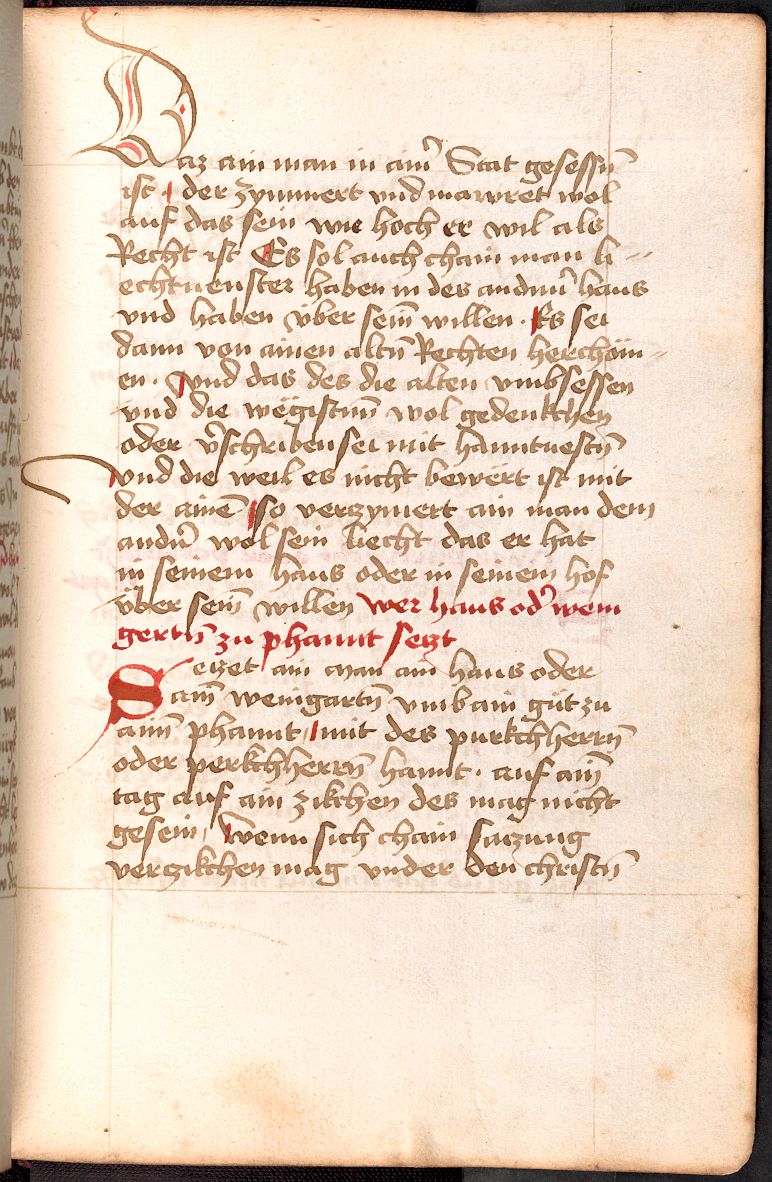 Daz ain man in ainr Stat gesessn̄
ist · der zymmert vnd mawret wol
auf das sein wie hoch er wil als
Recht ist Es sol auch chain man li=
echtuenster haben in des andmr̄ haus
vnd haben über sein̄ willen · Es sei
dann von ainen altn̄ Rechten herchöm=
en · vnd das des die alten vmbsessen
vnd die wëgistnn̄ wol gedenkchen
oder v̄schriben sei mit hanntuestn̄
vnd die weil es nicht bewërt ist mit
der ainē so verzymert ain man dem
andn̄ wol sein liecht das er hat
in seinem haus oder in seinem hof
über sein̄ willen wer haus od̄ wein
gertn̄ zu phannt setzt
Setzet ain man ain haus oder
ain̄ weingartn̄ vmb ain güt zu
ainn̄ phannt / mit des purkchherrn̄
oder perkchherrn̄ hannt · auf ain̄
tag auf ain zikchen des mag nicht
gesein / wenn sich chain saczung
verzikchen mag vnder den christn̄